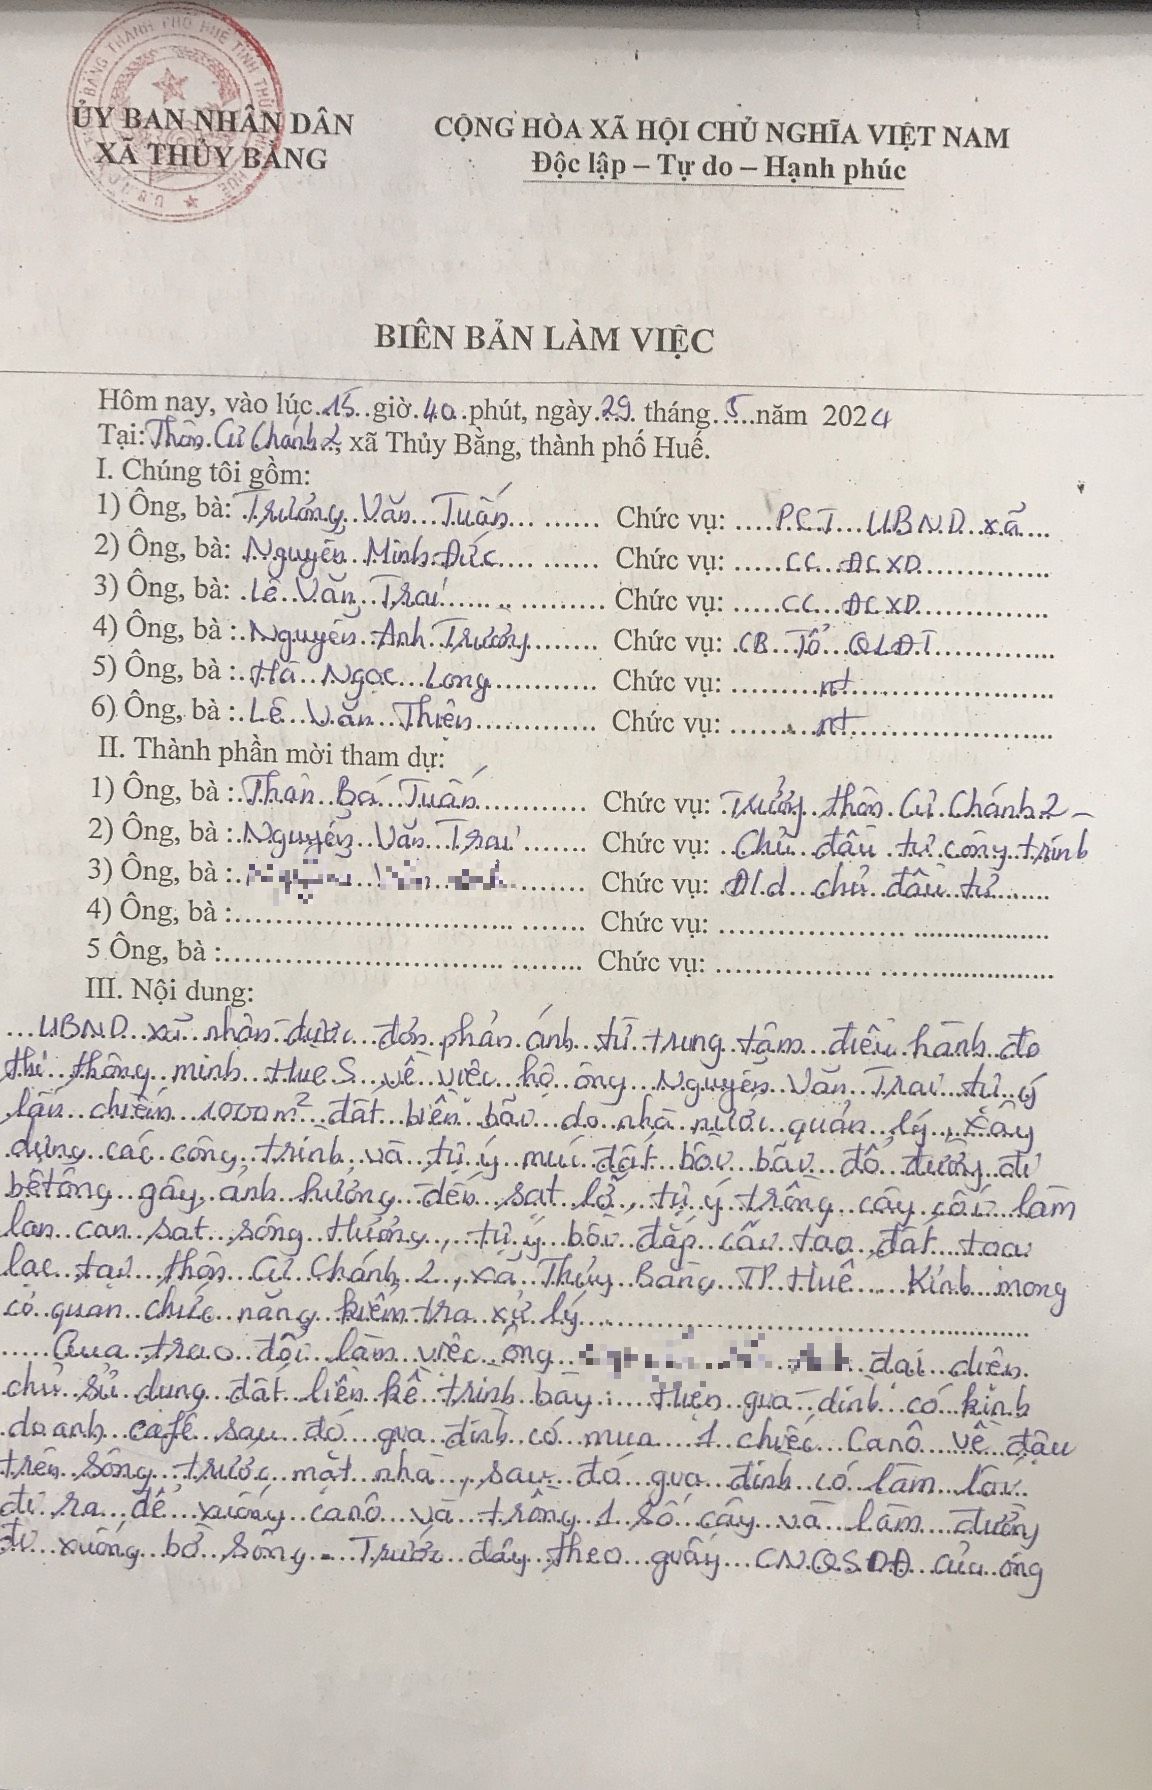 ỦY BAN NHÂN DÂN
XÃ THỦY BẰNG
CỘNG HÒA XÃ HỘI CHỦ NGHĨA VIỆT NAM
Độc lập – Tự do – Hạnh phúc
BIÊN BẢN LÀM VIỆC
Hôm nay, vào lúc 15 giờ 40 phút, ngày 29 tháng 5 năm 2024
Tại: Thôn Cư Chánh 2, xã Thủy Bằng, thành phố Huế.
I. Chúng tôi gồm:
1) Ông, bà: Trương Văn Tuấn Chức vụ: P.C.T UBND xã
2) Ông, bà: Nguyễn Minh Đức Chức vụ: CC ĐCXD
3) Ông, bà: Lê Văn Trai Chức vụ: CC ĐCXD
4) Ông, bà: Nguyễn Anh Trường Chức vụ: CB Tổ QLĐT
5) Ông, bà: Hà Ngọc Long Chức vụ: nt
6) Ông, bà: Lê Văn Thiện Chức vụ: nt
II. Thành phần mời tham dự:
1) Ông, bà: Thân Bá Tuấn Chức vụ: Trưởng thôn Cư Chánh 2
2) Ông, bà: Nguyễn Văn Trai Chức vụ: Chủ đầu tư công trình
3) Ông, bà: Chức vụ: Đ/d chủ đầu tư
4) Ông, bà: Chức vụ:
5 Ông, bà: Chức vụ:
III. Nội dung:
UBND xã nhận được đơn phản ánh từ trung tâm điều hành đô
thị thông minh HueS về việc hộ ông Nguyễn Văn Trai tự ý
lấn chiếm 1000m² đất biền bãi do nhà nước quản lý, xây
dựng các công trình và tự ý múc đất bồi bãi đổ đường đi
bêtông gây ảnh hưởng đến sạt lở, tự ý trồng cây cối làm
lan can sát sông Hương, tự ý bồi đắp cải tạo đất tọa
lạc tại thôn Cư Chánh 2, xã Thủy Bằng TP. Huế. Kính mong
cơ quan chức năng kiểm tra xử lý
Qua trao đổi làm việc ông đại diện
chủ sử dụng đất liền kề trình bày: Hiện gia đình có kinh
doanh café sau đó gia đình có mua 1 chiếc Canô về đậu
trên sông trước mặt nhà, sau đó gia đình có làm lối
đi ra để xuống canô và trồng 1 số cây và làm đường
đi xuống bờ sông. Trước đây theo giấy CNQSDĐ của ông